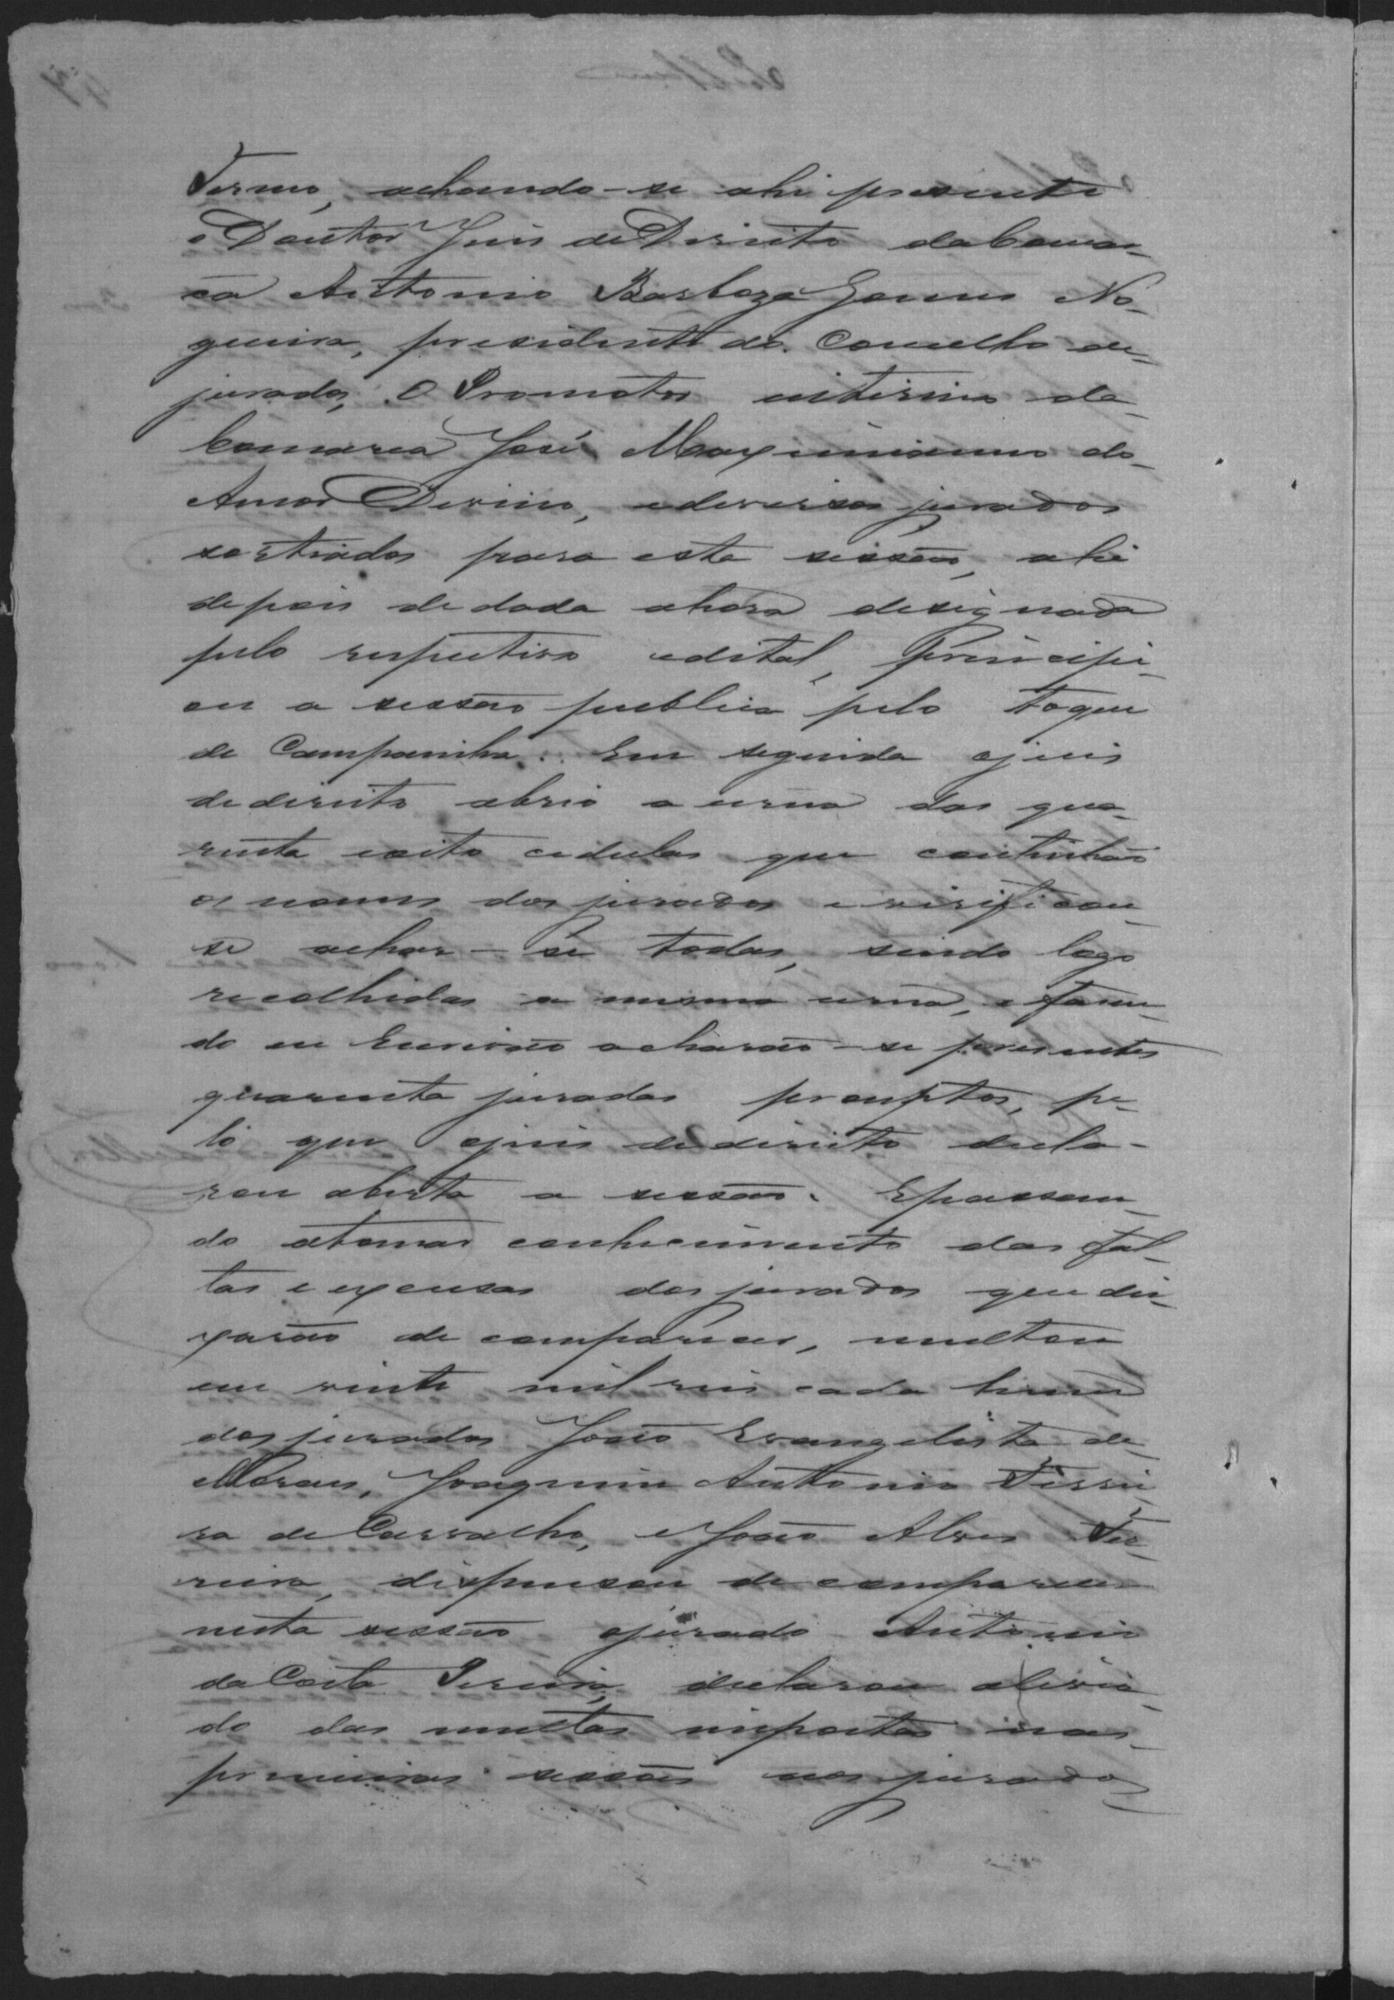 Termo, achando-se ahi presente
o Doutor Juis de Direito da Comar-
ca Antonio Barboza Gomes No-
gueira, presidente do Concelho de
jurados, O Promotor interino da
Comarca José Maximiano do
Amor Divino, e diversos jurados
sortiados para esta sessão, ahi
depois de dada a hora designada
pelo respectivo edital, Principi-
ou a sessão publica pelo toque
de Campainha. Em seguida o juis
de direito abrio a urna das qua-
renta e oito cedulas que continhão
os nomes dos jurados e verificou
se achar-se todas, sendo logo
recolhidas a mesma urna, e fasen-
do eu Escrivão acharão-se presentes
quarenta jurados promptos, pe-
lo que o juis de direito decla-
rou aberta a sessão. E passan-
do a tomar conhecimento das fal-
tas e excusas dos jurados que dei-
xarão de comparecer, multou
em vinte mil reis cada hum
dos jurados João Evangelista de
Moraes, Joaquim Antonio Ferrei-
ra de Carvalho, e João Alves Fer-
reira, dispensou de comparecer
nesta sessão o jurado Antonio
da Costa Pereira, declarou alivia-
do das multas impostas nas
primeiras sessões aos jurados